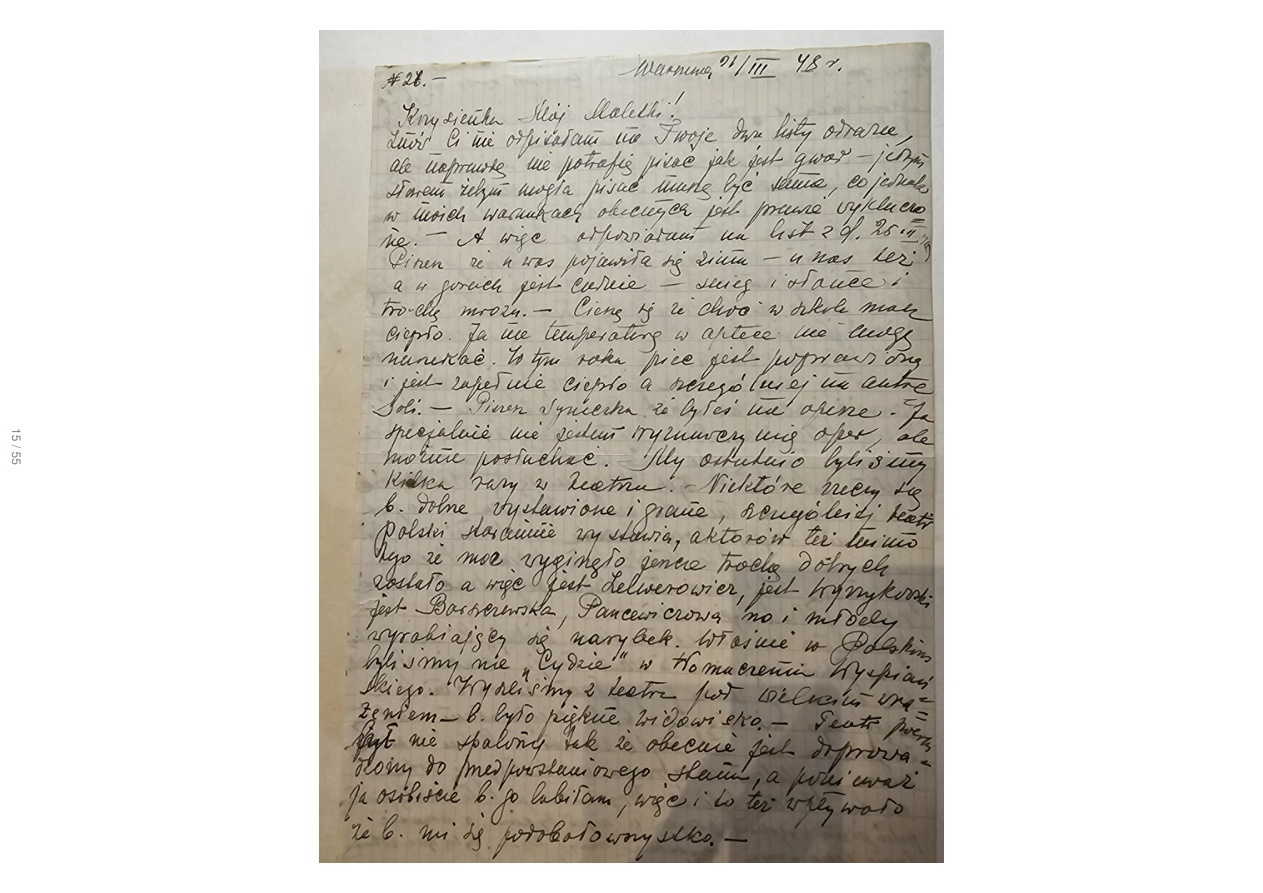 15 / 55
Warszawa 31/III 48 r.
№ 21. —
Krzysieńka Mój Maleńki!
Znów Ci nie odpisałam na Twoje dwa listy odrazu,
ale naprawdę nie potrafię pisać jak jest gwar — jednym
słowem żebym mogła pisać muszę być sama, co jednak
w moich warunkach obecnych jest prawie wykluczo=
ne. — A więc odpowiadam na list z d. 25 III
Piszesz że u was pojawiła się zima — u nas też
a w górach jest cudnie — śnieg i słońce i
trochę mrozu. — Cieszę się że choć w szkole masz
ciepło. Ja na temperaturę w aptece nie mogę
narzekać. W tym roku piec jest poprawiony
i jest zupełnie ciepło a szczególniej na
Soli. — Piszesz Syneczku że byłeś na operze. Ja
specjalnie nie jestem wyznawczynią oper, ale
można posłuchać. — My ostatnio byliśmy
kilka razy w teatrze. — Niektóre rzeczy są
b. dobrze wystawione i grane, szczególniej teatr
Polski starannie wystawia, aktorów też mimo
tego że moc wyginęło jeszcze trochę dobrych
zostało a więc jest Zelwerowicz, jest Wyrzykowski
jest Barszczewska, Pancewiczowa no i młody
wyrabiający się narybek. Właśnie w Polskim
byliśmy na „Cydzie" w tłomaczeniu Wyspiań
skiego. Wyszliśmy z teatru pod wielkim wra=
żeniem — b. było piękne widowisko. — Teatr
był nie spalony tak że obecnie jest doprowa=
dzony do przedpowstaniowego stanu, a ponieważ
ja osobiście b. go lubiłam, więc i to też wpływało
że b. mi się podobało wszystko. —